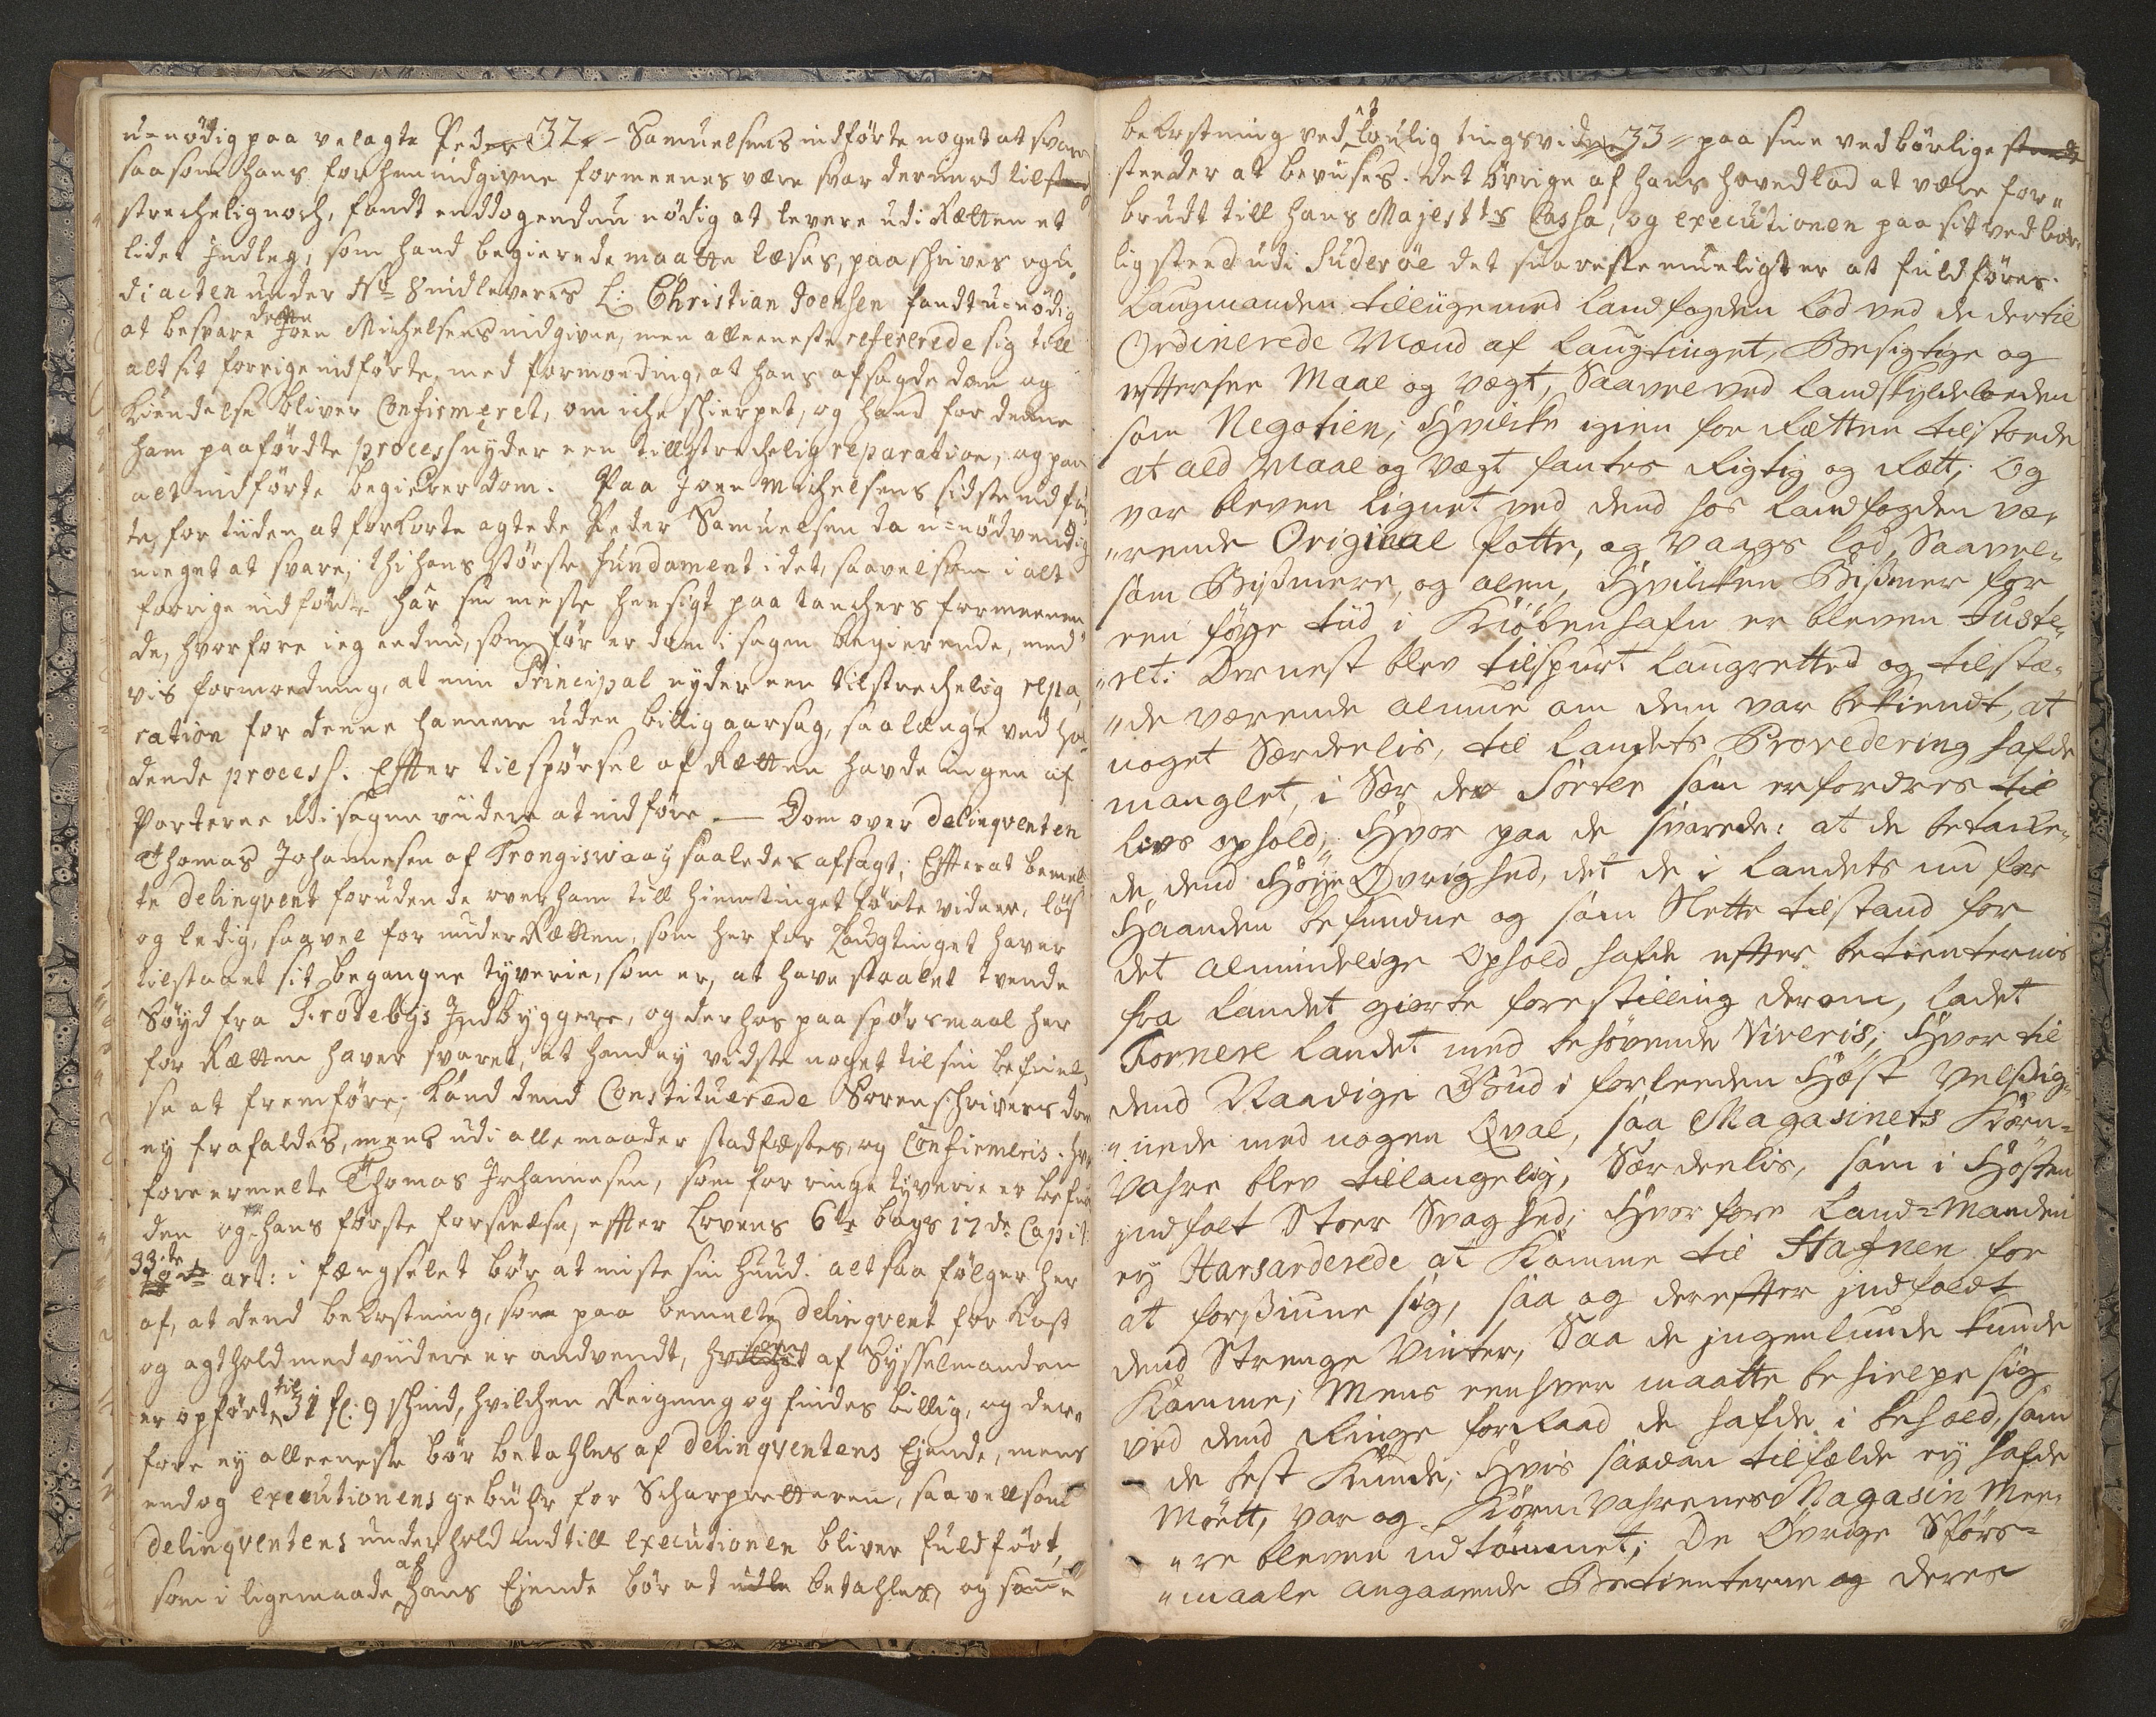 32
u=nödig paa velagte Peder Samuelsens indförte noget at svare
saasom hans forhen indgivne formeenes være svar derimod tilst
strechelig noch, fandt enddog endnu nödig at levere udi Rætten et
lidet Indleg, som hand begierede maatte læses, paaschrives og u
di acten under No 8 indleveres L: Christian Joensen fandt u=nödig
at besvare dette Joen Michelsens indgivne, men alleeneste refererede sig till
alt sit forrige indförte, med formoeding, at hans afsagde dom og
Kiendelse bliver Confirmeret, om iche schierpet, og hand for denne
ham paafördte process nyder een tillstrechelig reparation, og paa
alt indförte begierer dom. Paa Joen Michelsens sidste indför
te, for tiiden at forkorte agtede Peder Samuelsen da u=nödvendig
meget at svare, thi hans störste fundament i det, saavelsom i alt
forrige indförte har sin meste hensigt paa tanchers formeenen
de, hvorfore ieg endnu, som för er dom i sagen begierende, med
vis formoedning, at min Principal nyder een tilstrechelig repa,
ration for denne hannem uden billig aarsag, saa længe ved ho
dende process. Effter tilspörsel af Rætten havde ingen af
Parterne udi sagen viidere at indföre — Dom over delinqventen
Thomas Johannesen af Trongiswaag saaledes afsagt; Effter at bemel
te delinqvent foruden de over ham till hiemtinget förte vidner, lös
og ledig, saavel for under Rætten, som her for Laugtinget haver
tilstaaet sit begangne tyverie, som er, at have staalet tvende
Söyd fra Frodebøjs Indbyggere, og derhos paa spörsmaal her
for Rætten haver svaret, at hand ey vidste noget til sin befriel,
se at fremföre; Kand dend Constituerede Sorenschrivers dom
ey frafaldes, mens udi alle maader stadfæstes, og Confirmeris. hvor
fore ermelte Thomas Johannesen, som for ringe tyverie er befun
den og hans förste forseelse, effter Lovens 6te bogs 17de Capit:
33te art: i fængselet bör at miste sin Huud. altsaa fölger her
af, at dend bekostning, som paa bemelte delinqvent for Kost
og agthold med viidere er andvendt, af Sysselmanden
er opfört til 31 fl: 9 schind, hvilchen Reigning og findes billig, og der„
fore ey alleeneste bör betahles af delinqventens Ejende, mens
end og executionens gebühr for Scharpretteren, saavelsom
delinqventens underhold indtill executionen bliver fuldfört,
som i ligemaade af hans Ejende bör at udle betahles, og samme
33
bekostning ved loulig tingsvidne paa sine vedbörlige
steeder at beviises. det övrige af hans hovedlod at være for„
brudt till hans Majestts Cassa, og executionen paa sit vedbör
lig steed udi Suderöe det snareste mueligt er at fuldföres.
Laugmanden tilligemed Landfogden lod ved de dertil
Ordinerede Mænd af Laugtinget, Besigtige og
efftersee Maal og Vægt, Saavel ved Landskyldeboeden
som Negotien; Hvilke igien for Rætten tilstoede
at ald Maal og Vægt fantes Rigtig og Rætt; Og
var bleven lignet ved dend hos Landfogden væ„
„rende Original Potte, og Vaags Lod, Saavel„
som Bismere, og alen, Hvilken Bismer for
een föye tiid i Kiöbenhafn er bleven Juste„
„ret: Dernest blev tilspurt Laugretted og tilstæ„
„de værende almue om dem var bekiendt, at
noget Særdeelis, til Landets Provedering hafde
manglet, i Sær der Sorter som erfordres til
Livs ophold; Hvor paa de svarede: at de betacke„
de dend Höye Övrighed, det de i Landets nu for
Haanden befundne og som Slette tilstand for
det almindelige Ophold hafde effter betienternis
fra Landet giorte forestilling derom, ladet
Fornere Landet med behövende Viveris; Hvor til
dend Naadige Gud i forleeden Höst velsig„
„nede med nogen Qval, saa Magasinets Korn=
Vahre blev tillangelig, Særdeelis, som i Hösten
jndfalt Stoer Svaghed; Hvor fore Land=Manden
ey Harsarderede at Komme til Hafnen for
at forsiune sig, saa og derefter jndfaldt
dend Strenge Vinter, Saa de jngenlunde kunde
Komme; Mens eenhver maatte behielpe sig
ved dend Ringe forRaad de hafde i behold, som
de best Kunde; Hvis saadan tilfælde ey hafde
Mött, var og Korn=Vahrenes Magasin Mee„
„re bleven udtömmet; De Övrige Spörs=
„maale angaaende Betienterne og deres